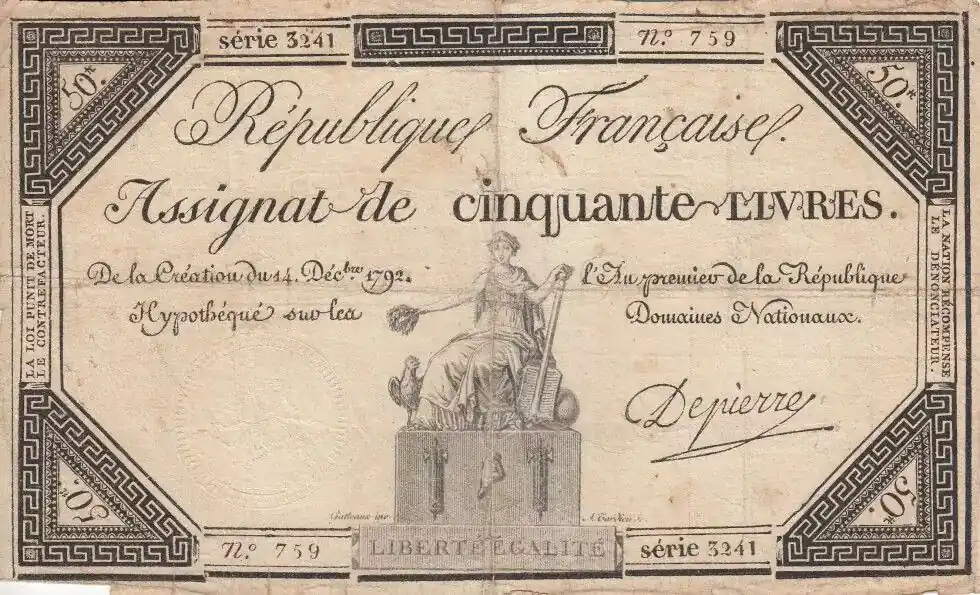 série 3241
N.º 759
50.tt
50.tt
République Française.
Assignat de cinquante LIVRES.
De la Création du 14. Décbre 1792.
l'An premier de la République
Hypothéqué sur les
Domaines Nationaux.
LA LOI PUNIT DE MORT
LE CONTREFACTEUR.
LA NATION RÉCOMPENSE
LE DÉNONCIATEUR.
Depierre
Gatteaux inv.
50.tt
50.tt
LIBERTÉ EGALITÉ
N.º 759
série 3241